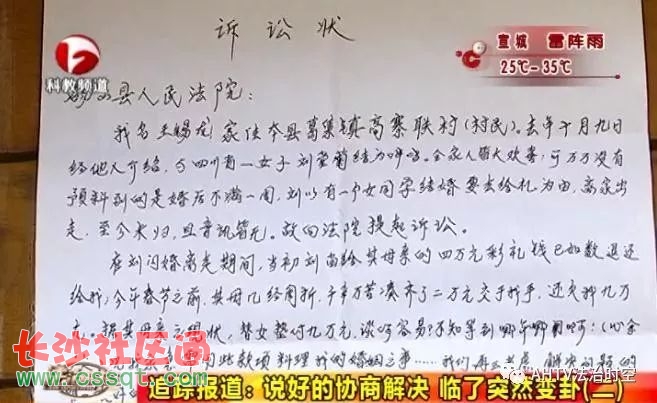 诉讼状
宣城 雷阵雨
25℃-35℃
科教频道
砀山县人民法院：
我名王赐龙家住本县葛集镇高寨联村(村民)。去年十月九日
经他人介绍，与四川有一女子刘 菊结为 。全家人皆大欢喜；可万万没有
预料到的是婚后不满一周，刘以有一个女同学结婚要去给礼为由，离家出
走，至今未归，且音讯皆无。故向法院提起诉讼。
在刘闪婚离走期间，当初刘 给其母亲的四万元彩礼钱已如数退还
给我；今年春节之前，其母几经周折，千辛万苦凑齐了二万元交于我手，还欠我九万
元。据其母亲之现状，替女垫付九万元，谈何容易？不知等到哪年哪月啊：(心余
些款项料理我的婚姻之事……我们再三考虑，解决问题的
长沙社区通
www.cssqt.com
追踪报道：说好的协商解决 临了突然变卦(二)
AHTV法治时空